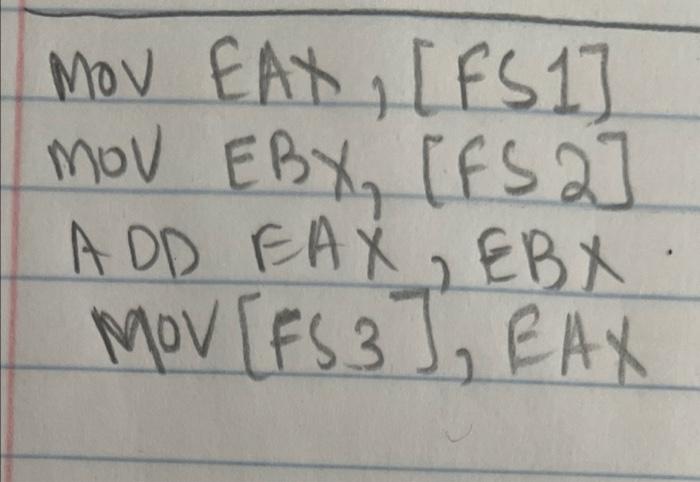 MOV EAX, [FS1]
MOV EBX, [FS2]
ADD EAX, EBX
MOV [FS3], EAX